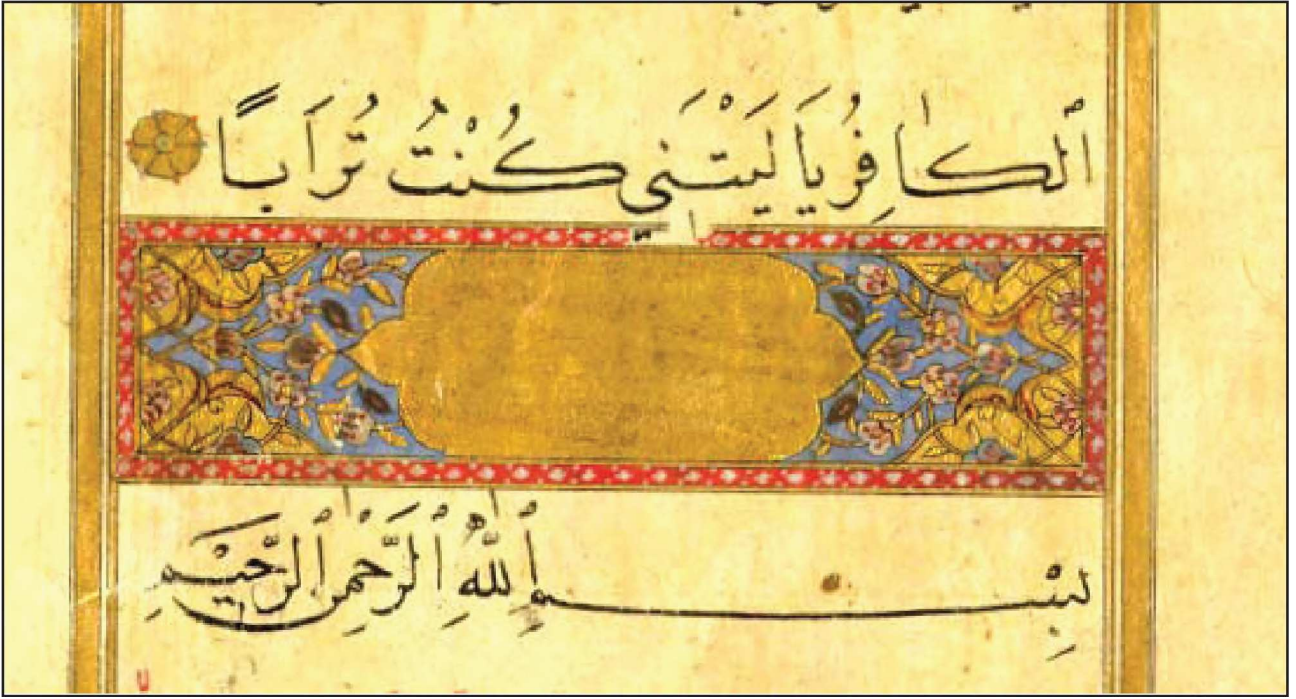 ٱلْكَافِرُ يَا لَيْتَنِي كُنْتُ تُرَابًا
بِسْمِ ٱللَّهِ ٱلرَّحْمٰنِ ٱلرَّحِيمِ